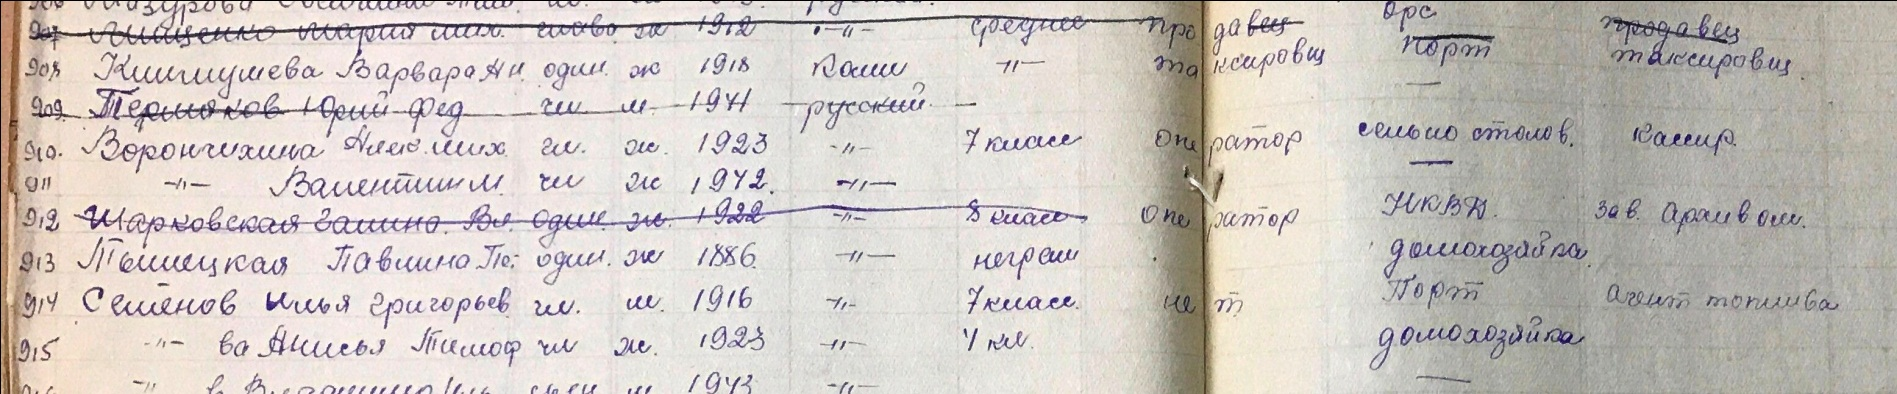 907 Мария мих. глава ж 1912 -"- среднее продавец орс продавец
908 Варвара Ан один. ж 1918 Коми -"- таксировщ Порт таксировщ.
909. Термаков Юрий Фед чл м. 1941 русский. — —
910. Ворончихина Алек. мих. гл. ж. 1923 -"- 7 класс оператор сельпо столов. Кассир.
911 -"- Валентин М. чл ж 1942. -"- —
912 Шарковская Галина. Вл. один. ж. 1922 -"- 8 класс оператор НКВД. Зав. Архивом.
913 Павлина Пе. один. ж 1886. -"- неграм домохозяйка.
914 Семёнов Илья Григорьев. гл. м. 1916 -"- 7 класс. нет Порт агент топлива
915 -"- ва Анисья Тимоф чл ж. 1923 -"- 4 кл. домохозяйка
-"- в м 1943 -"- —